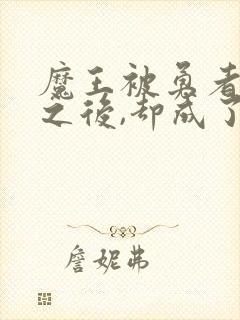 魔王被勇者
之後,却成了
詹妮弗